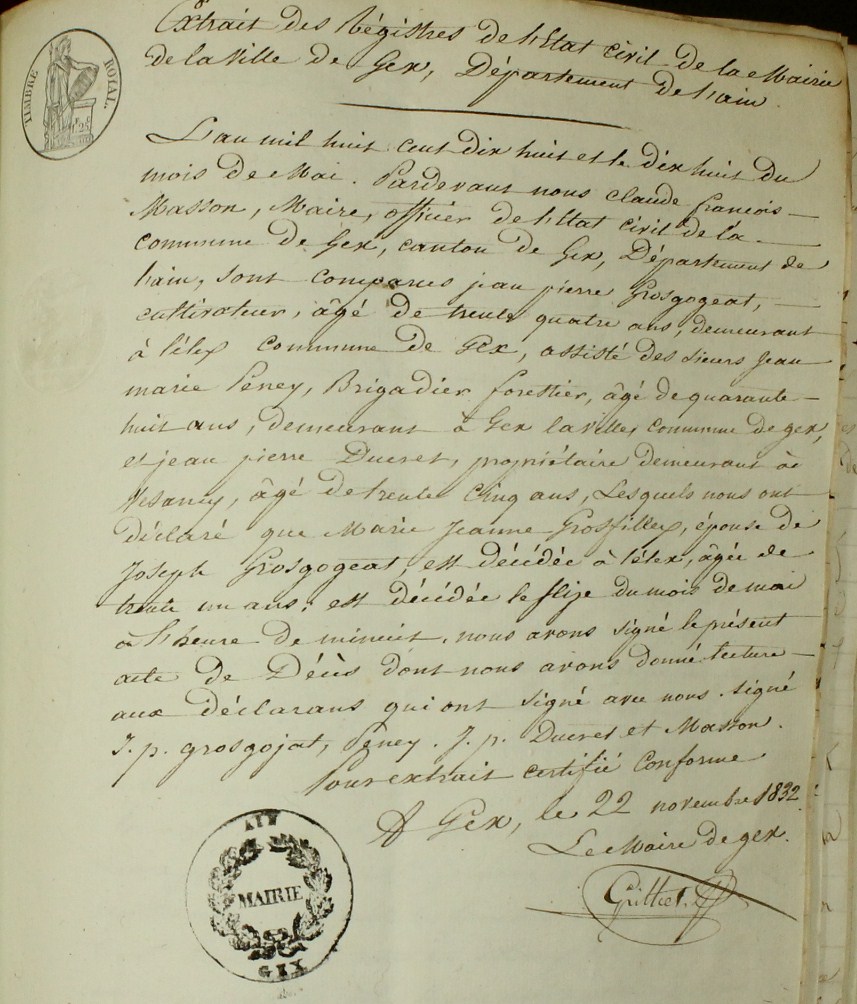 TIMBRE ROYAL.
Extrait des Régistres de l'Etat civil de la Mairie
de la Ville de Gex, Département de l'ain
L'an mil huit cent dix huit et le dix huit du
mois de Mai. Pardevant nous Claude françois
Masson, Maire, officier de l'Etat civil de la
commune de Gex, canton de Gex, Département de
l'ain, sont comparus jean pierre Grosgogeat,
cultivateur, âgé de trente quatre ans, demeurant
à lélex commune de Gex, assisté des sieurs Jean
marie Péney, Brigadier forestier, âgé de quarante
huit ans, demeurant à Gex la Ville, commune de gex,
et jean pierre Ducret, propriétaire demeurant à
Vesancy, âgé de trente cinq ans, Lesquels nous ont
déclaré que Marie Jeanne Grosfillex, épouse de
Joseph Grosgogeat, est décédée à lélex, âgée de
trente un ans, est décédée le du mois de mai
à l'heure de minuit. nous avons signé le présent
acte de Décès dont nous avons donné lecture
aux déclarans qui ont signé avec nous. signé
J. p. grosgojat, Péney. J. p. Ducret et Masson.
Pour extrait certifié Conforme
A Gex, le 22 novembre 1832.
Le Maire de gex.
AIN
MAIRIE
GEX